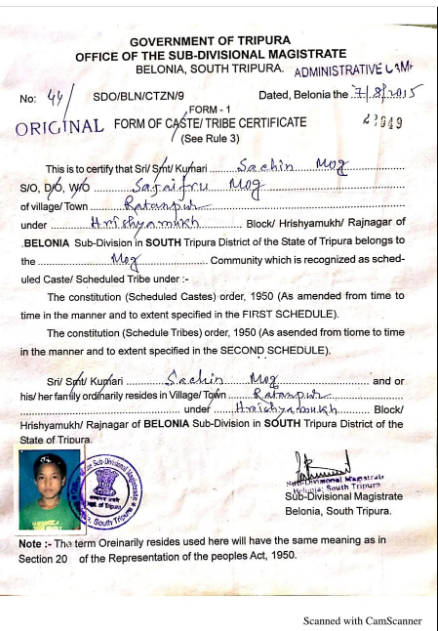 GOVERNMENT OF TRIPURA
OFFICE OF THE SUB-DIVISIONAL MAGISTRATE
BELONIA, SOUTH TRIPURA. ADMINISTRATIVE CAMP
No: 44/ SDO/BLN/CTZN/9 Dated, Belonia the 7/8/2015
FORM - 1
ORIGINAL FORM OF CASTE/ TRIBE CERTIFICATE 949
(See Rule 3)
This is to certify that Sri/ Smt/ Kumari Sachin Mog
S/O, D/O, W/O Safaifru Mog
of village/ Town Ratanpur
under Hrishyamukh Block/ Hrishyamukh/ Rajnagar of
BELONIA Sub-Division in SOUTH Tripura District of the State of Tripura belongs to
the Mog Community which is recognized as sched-
uled Caste/ Scheduled Tribe under :-
The constitution (Scheduled Castes) order, 1950 (As amended from time to
time in the manner and to extent specified in the FIRST SCHEDULE).
The constitution (Schedule Tribes) order, 1950 (As asended from tiome to time
in the manner and to extent specified in the SECOND SCHEDULE).
Sri/ Smt/ Kumari Sachin Mog and or
his/ her family ordinarily resides in Village/ Town Ratanpur
under Hrishyamukh Block/
Hrishyamukh/ Rajnagar of BELONIA Sub-Division in SOUTH Tripura District of the
State of Tripura.
Sub-Divisional Magistrate
Belonia, South Tripura
Sub-Divisional Magistrate
Belonia, South Tripura.
Note :- The term Oreinarily resides used here will have the same meaning as in
Section 20 of the Representation of the peoples Act, 1950.
Scanned with CamScanner